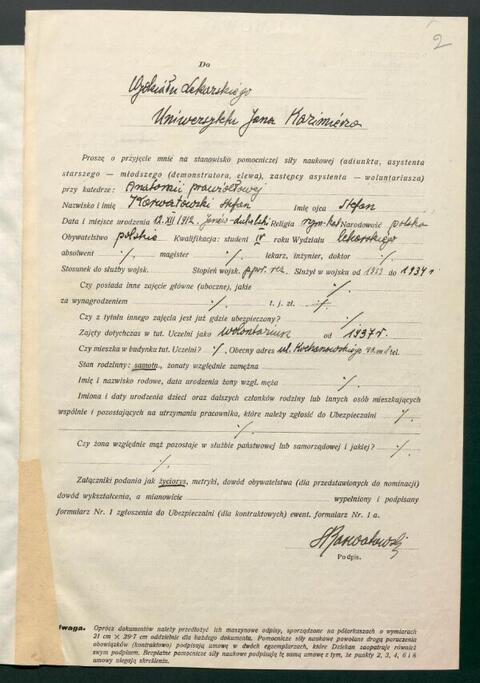 2
Do
Wydziału Lekarskiego
Uniwersytetu Jana Kazimierza
Proszę o przyjęcie mnie na stanowisko pomocniczej siły naukowej (adiunkta, asystenta
starszego — młodszego (demonstratora, elewa), zastępcy asystenta — woluntariusza)
przy katedrze: Anatomii prawidłowej
Nazwisko i imię Karwatowski Stefan Imię ojca Stefan
Data i miejsce urodzenia 12.XII 1912. Janów-lubelski Religia rzym-kat Narodowość polska
Obywatelstwo polskie Kwalifikacja: student IV roku Wydziału Lekarskiego
absolwent ·/. magister ·/. lekarz, inżynier, doktor ·/.
Stosunek do służby wojsk. Stopień wojsk. ppor. rez. Służył w wojsku od 1933 do 1934 r
Czy posiada inne zajęcie główne (uboczne), jakie ·/.
za wynagrodzeniem ·/. t. j. zł. ·/.
Czy z tytułu innego zajęcia jest już gdzie ubezpieczony? ·/.
Zajęty dotychczas w tut. Uczelni jako wolontariusz od 1937 r.
Czy mieszka w budynku tut. Uczelni? ·/. Obecny adres ul. Kochanowskiego tel.
Stan rodzinny: samotn., żonaty względnie zamężna
Imię i nazwisko rodowe, data urodzenia żony wzgl. męża ·/.
Imiona i daty urodzenia dzieci oraz dalszych członków rodziny lub innych osób mieszkających
wspólnie i pozostających na utrzymaniu pracownika, które należy zgłosić do Ubezpieczalni ·/.
·/.
Czy żona względnie mąż pozostaje w służbie państwowej lub samorządowej i jakiej? ·/.
·/.
Załączniki podania jak życiorys, metryki, dowód obywatelstwa (dla przedstawionych do nominacji)
dowód wykształcenia, a mianowicie wypełniony i podpisany
formularz Nr. 1 zgłoszenia do Ubezpieczalni (dla kontraktowych) ewent. formularz Nr. 1 a.
SKarwatowski
Podpis.
Uwaga. Oprócz dokumentów należy przedłożyć ich maszynowe odpisy, sporządzone na półarkuszach o wymiarach
21 cm × 29·7 cm oddzielnie dla każdego dokumentu. Pomocnicze siły naukowe powołane drogą poruczenia
obowiązków (kontraktowo) podpisują umowę w dwóch egzemplarzach, które Dziekan zaopatruje również
swym podpisem. Bezpłatne pomocnicze siły naukowe podpisują tę samą umowę z tym, że punkty 2, 3, 4, 6 i 8
umowy ulegają skreśleniu.